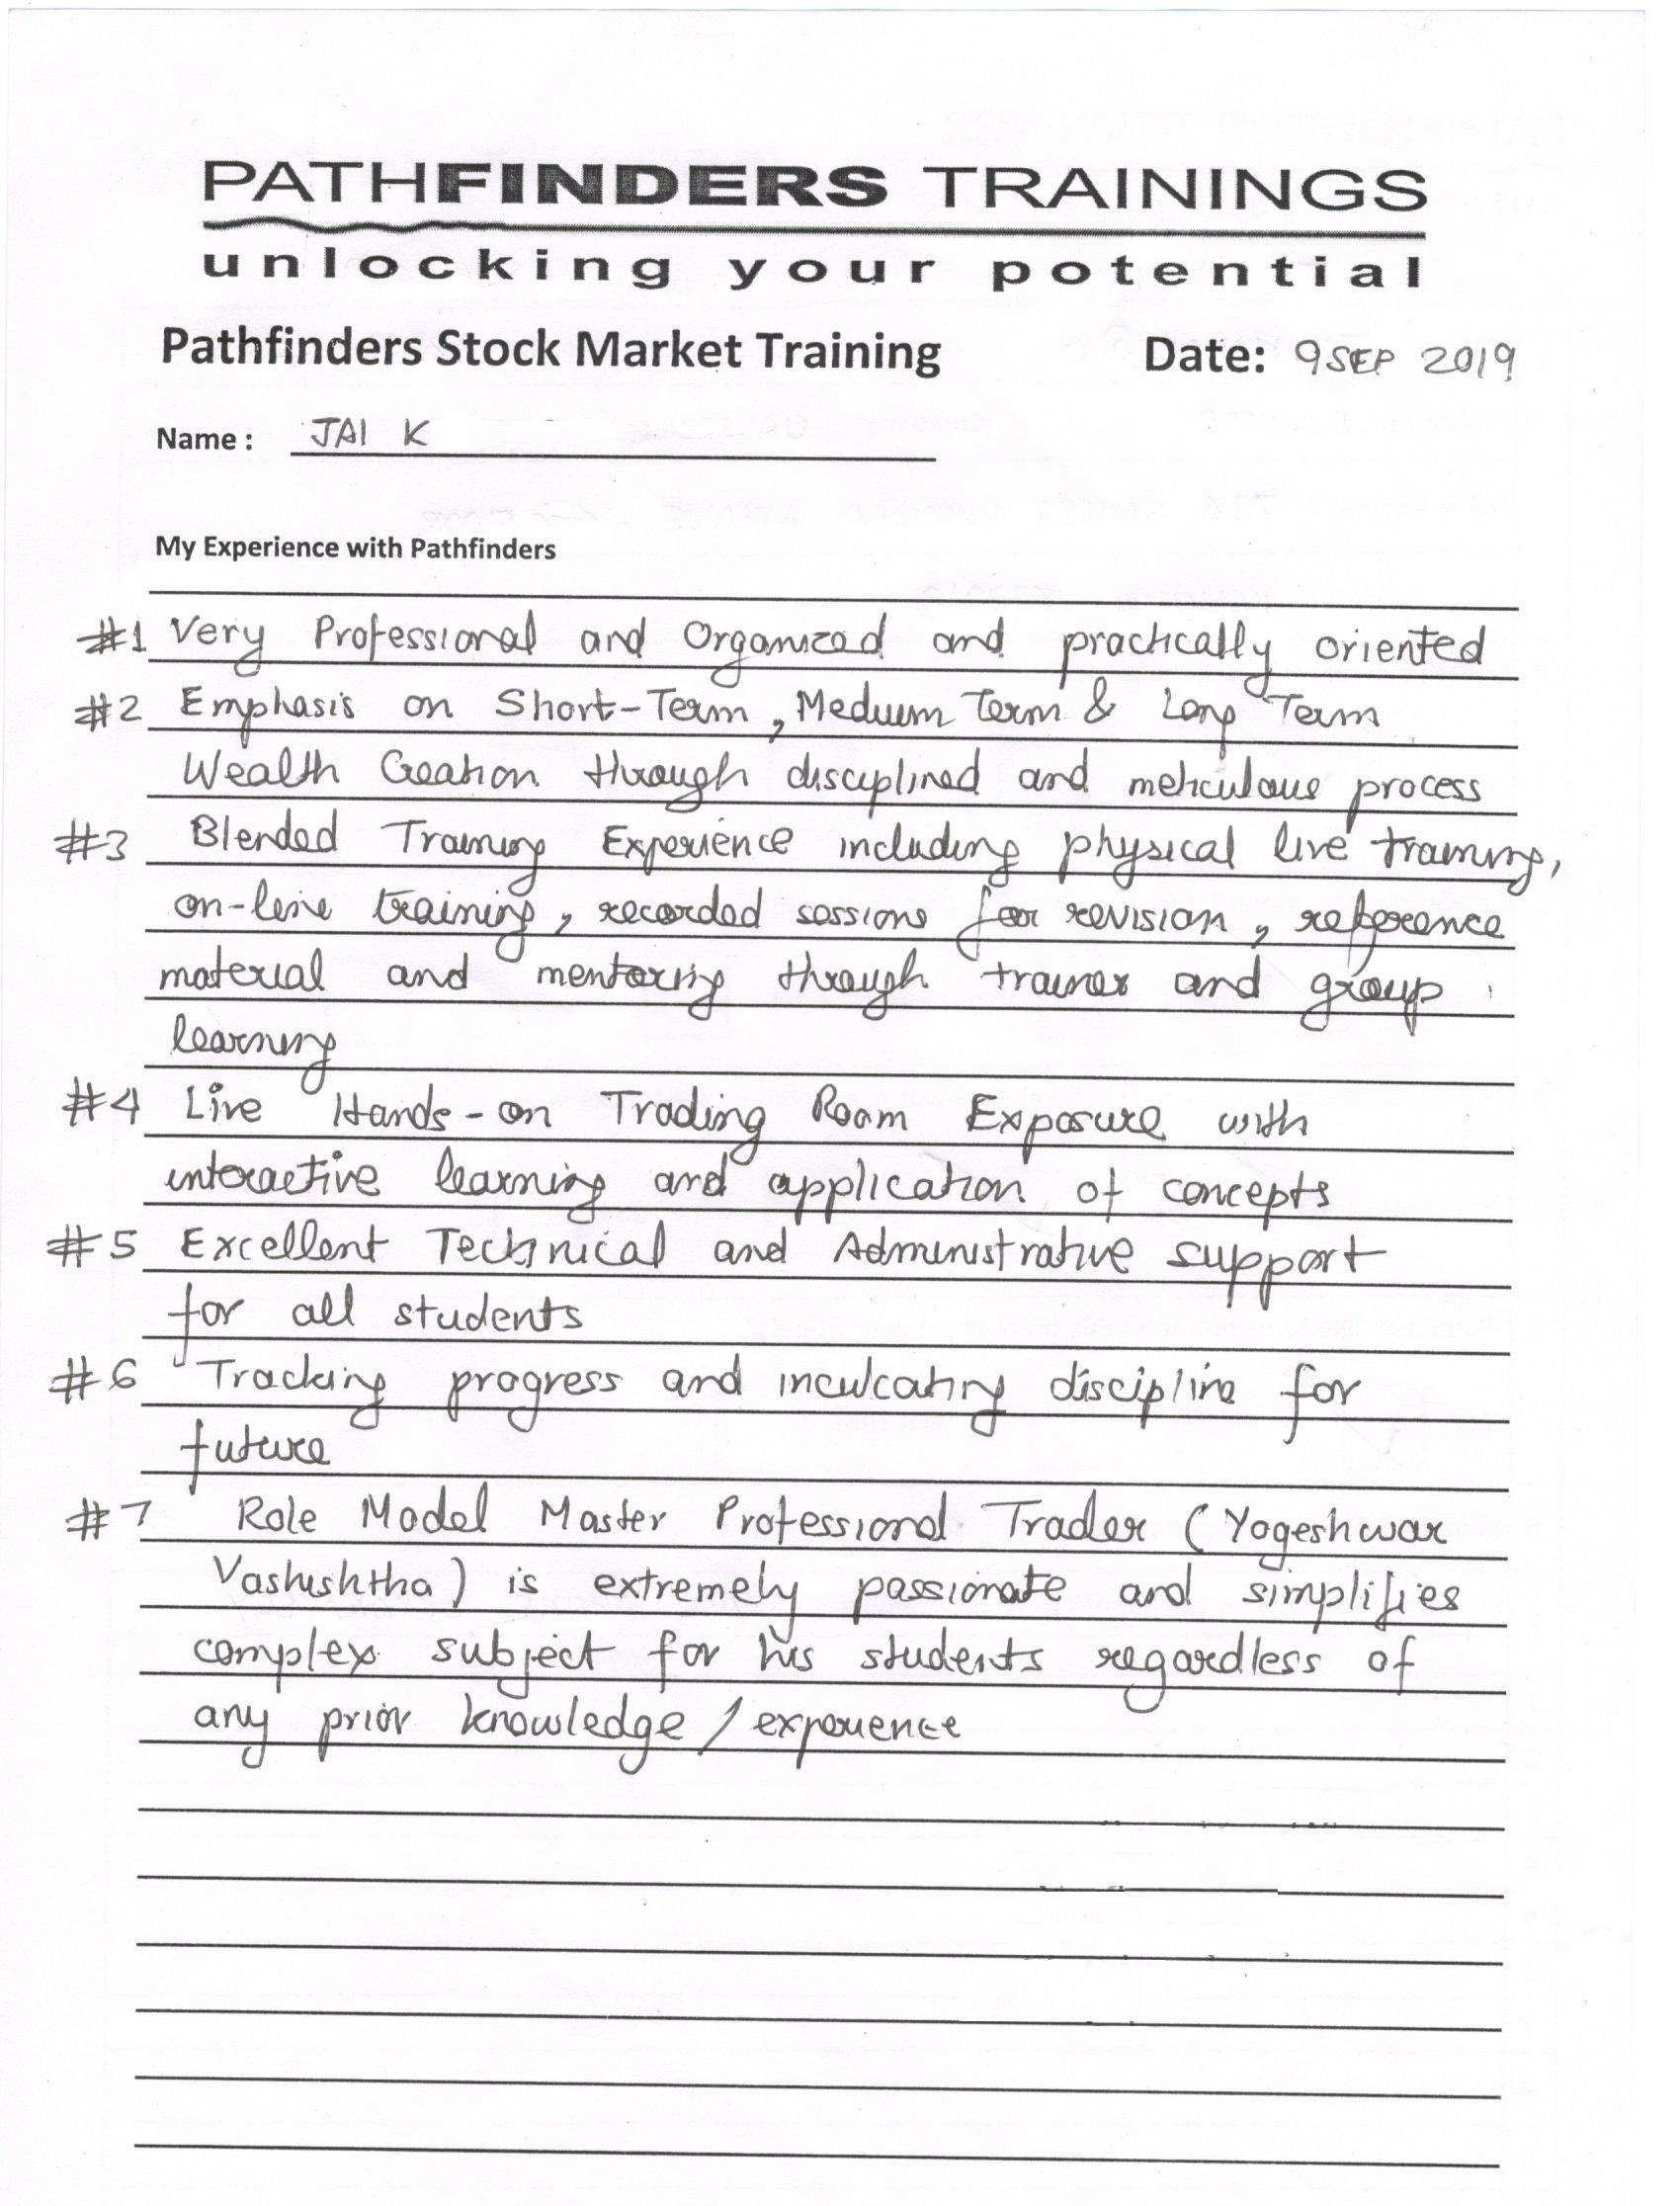 PATHFINDERS TRAININGS
unlocking your potential
Pathfinders Stock Market Training Date: 9 SEP 2019
Name : JAI K
My Experience with Pathfinders
#1 Very Professional and Organized and practically oriented
#2 Emphasis on Short-Term, Medium Term & Long Term
Wealth Creation through disciplined and meticulous process
#3 Blended Training Experience including physical live training,
on-line training, recorded sessions for revision, reference
material and mentoring through trainer and group
learning
#4 Live Hands-on Trading Room Exposure with
interactive learning and application of concepts
#5 Excellent Technical and Administrative support
for all students
#6 Tracking progress and inculcating discipline for
future
#7 Role Model Master Professional Trader (Yogeshwar
Vashishtha) is extremely passionate and simplifies
complex subject for his students regardless of
any prior knowledge / experience